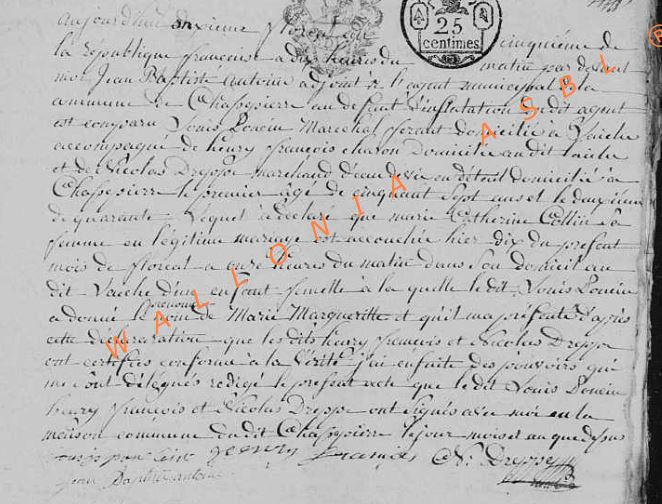 aujourd'hui onzieme floreal an cinquième de
la république françoise a dix heures du matin par devant
moi Jean Baptiste antoine adjoint à l'agent municipal de la
commune de Chassepierre au defaut d'installation dudit agent
est comparu Louis Marechal ferant domicilié a Laiche
accompagné de henry françois charon domicilié au dit laiche
et de Nicolas Dreppe marchand d'eau de vie en détail domicilié à
Chassepierre le premier âgé de cinquant sept ans et le deuxieme
de quarante Lequel a déclaré que marie Catherine Collin Sa
femme en légitime mariage est accouchée hier dix du present
mois de floreal a onze heures du matin dans Son domicil au
dit Laiche d'un enfant femelle à la quelle le dit Louis
a donné le prenom de Marie Margueritte et qu'il m'a présenté d'après
cette déclaration que les dits henry françois et Nicolas Dreppe
ont certifiés conforme à la Vérité j'ai ensuite des pouvoirs qui
me sont délégués redigé le présent acte que le dit Louis
henry françois et Nicolas Dreppe ont signés avec moi en la
maison commune du dit Chassepierre le jour mois et an que dessus
henry françois N: Dreppe
Jean Baptiste antoine
25
centimes
WALLONIA ASBL ®